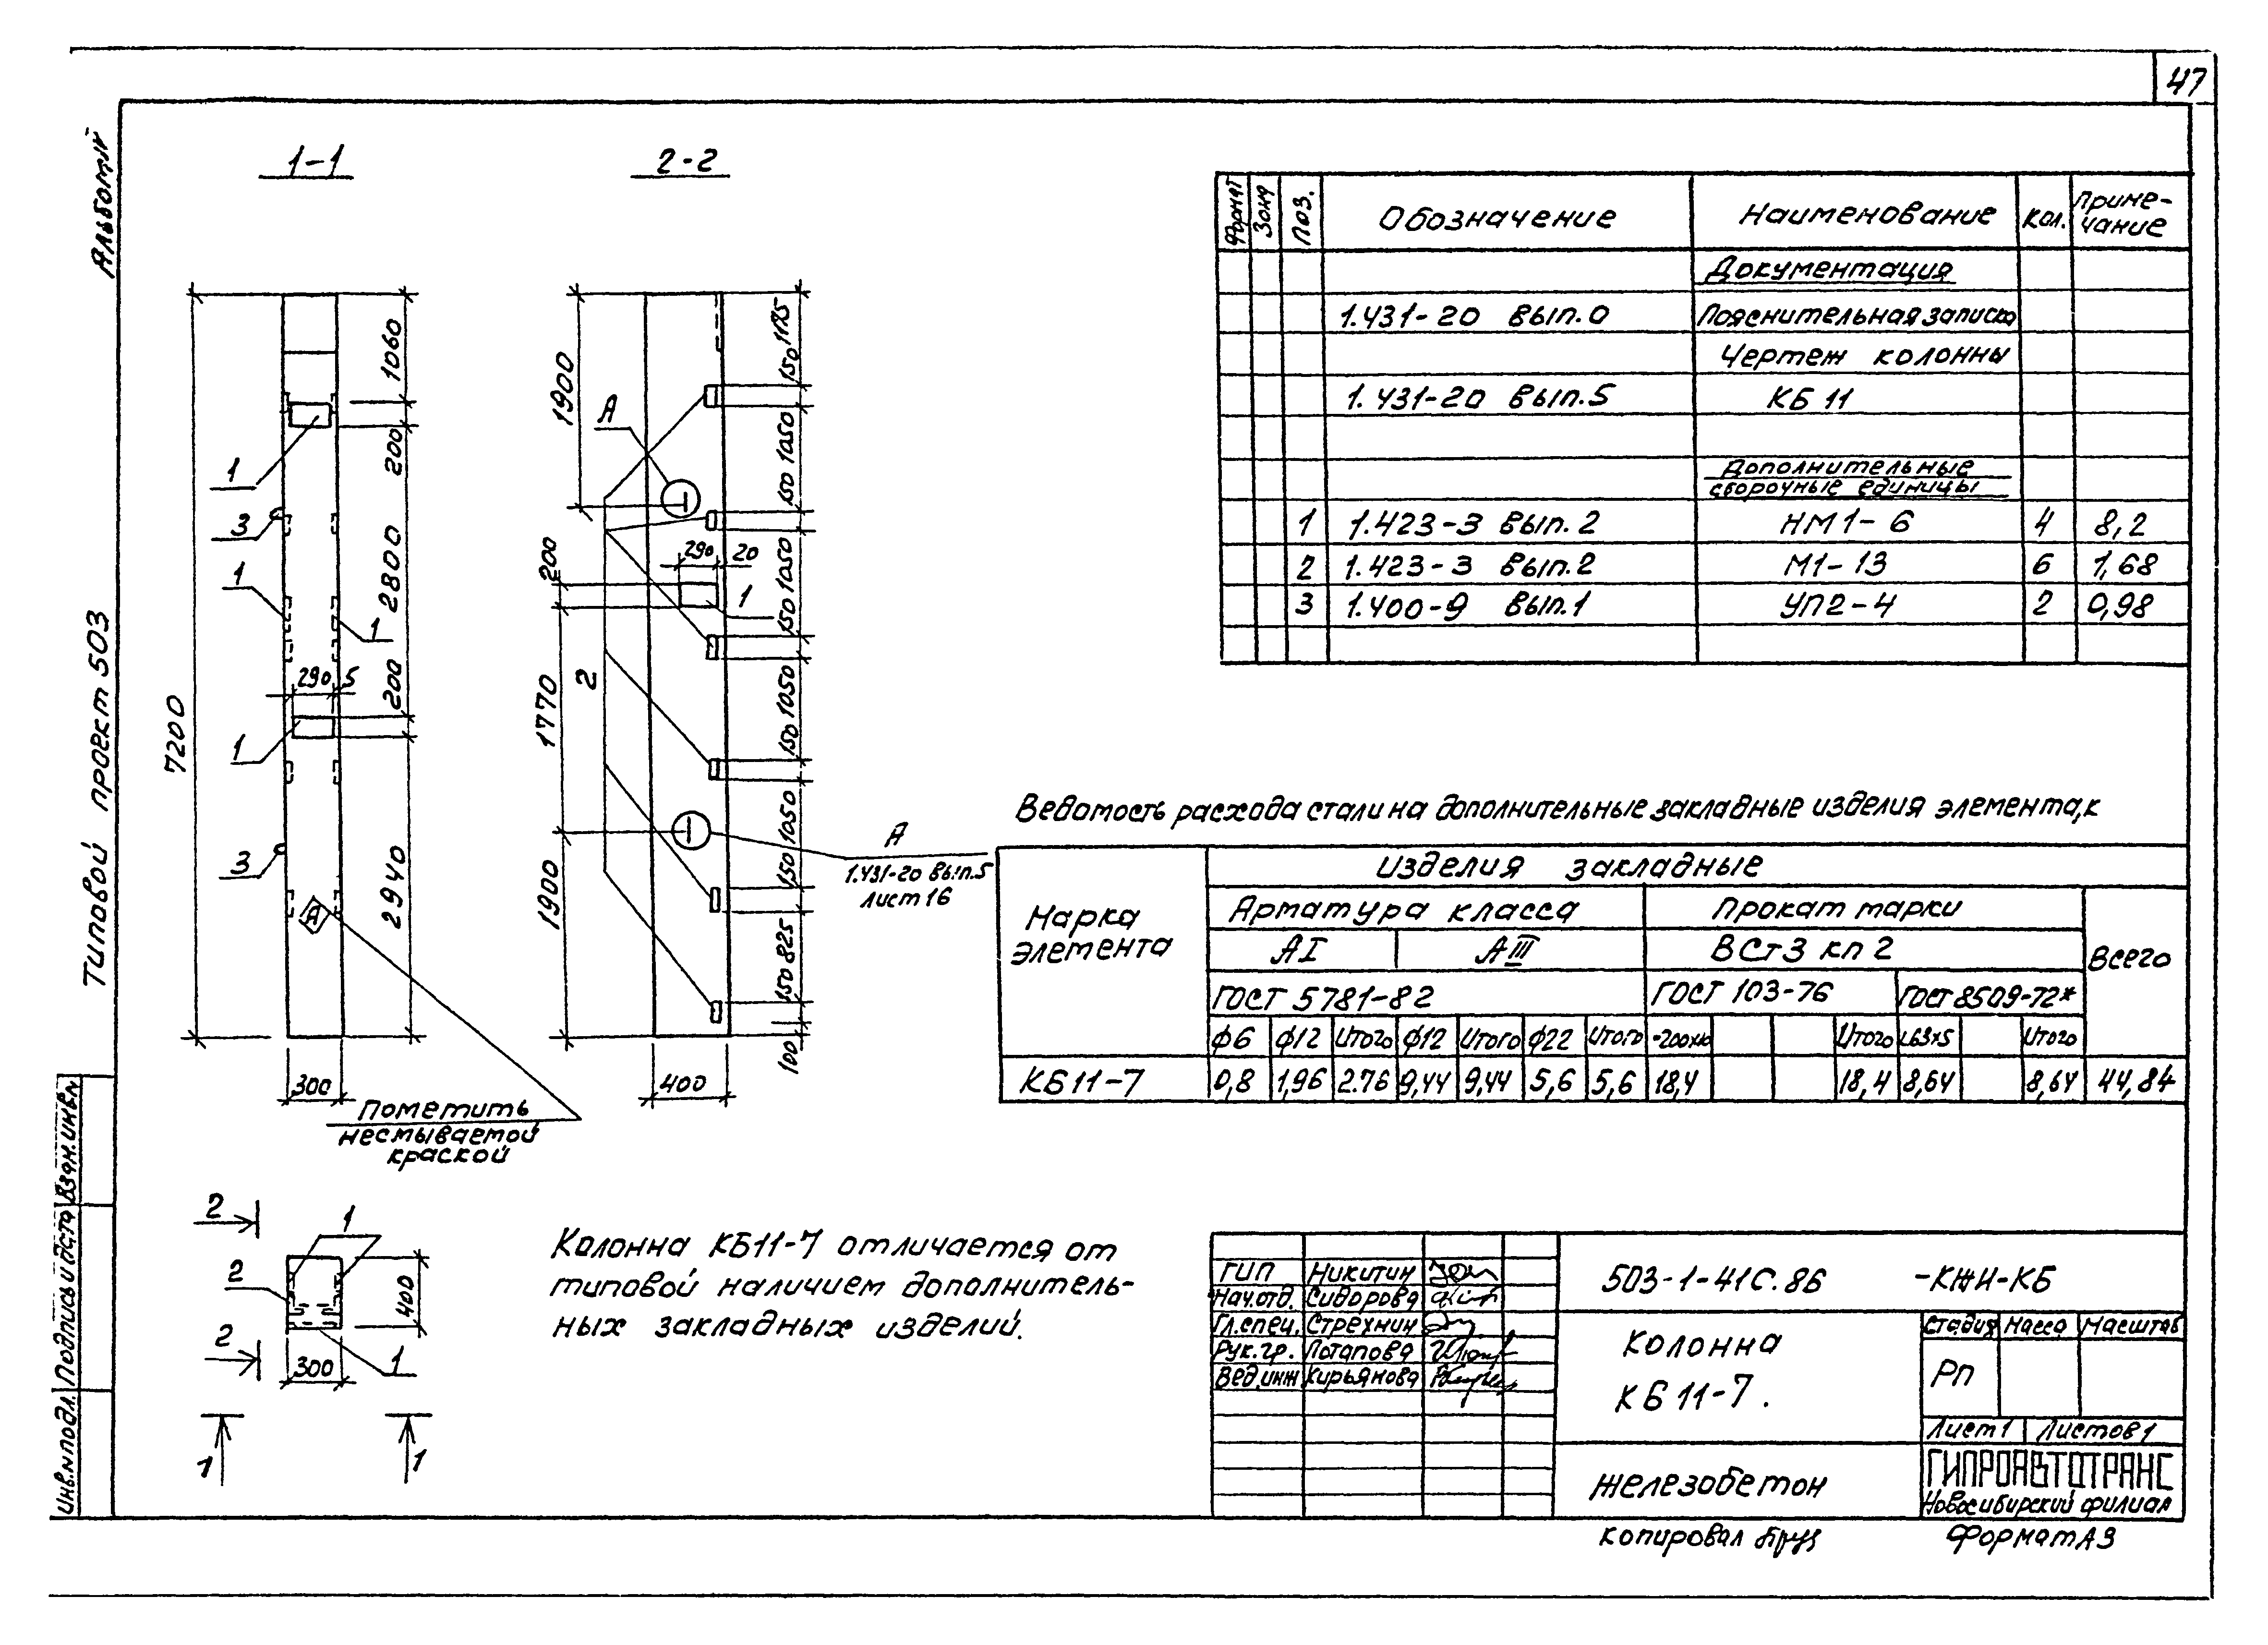 47
Альбом IV
Типовой проект 503
Инв.№подл. Подпись и дата Взам.инв.№
1-1
2-2
7200
1060
200
2800
200
2940
1
3
1
1
290 5
1
3
А
300
Пометить
несмываемой
краской
1900
А
200
290 20
1
2
1770
1900
А
1.431-20 вып.5
Лист 16
400
1175
150
1050
150
1050
150
1050
150
1050
150
825
150
100
2
1
2
400
2
300
1
1
1
Колонна КБ11-7 отличается от
типовой наличием дополнитель-
ных закладных изделий.
Формат Зона Поз. Обозначение Наименование Кол. Приме-
чание
Документация
1.431-20 вып.0 Пояснительная записка
Чертеж колонны
1.431-20 вып.5 КБ 11
Дополнительные
сборочные единицы
1 1.423-3 вып.2 НМ1-6 4 8,2
2 1.423-3 вып.2 М1-13 6 1,68
3 1.400-9 вып.1 УП2-4 2 0,98
Ведомость расхода стали на дополнительные закладные изделия элемента, к
Марка
элемента
Изделия закладные
Арматура класса Прокат марки
Всего
АI АIII ВСт3 кп 2
ГОСТ 5781-82 ГОСТ 103-76 ГОСТ 8509-72*
ф6 ф12 Итого ф12 Итого ф22 Итого Итого L63х5 Итого
КБ11-7 0,8 1,96 2.76 9,44 9,44 5,6 5,6 18,4 18,4 8,64 8,64 44,84
ГИП Никитин
Нач.отд. Сидорова
Гл.спец. Стрехнин
Рук.гр. Потапова
Вед.инж Кирьянова
503-1-41С.86 -КЖИ-КБ
Колонна
КБ 11-7.
Стадия Масса Масштаб
Рп
Лист 1 Листов 1
железобетон
ГИПРОАВТОТРАНС
Новосибирский филиал
Копировал
Формат А3